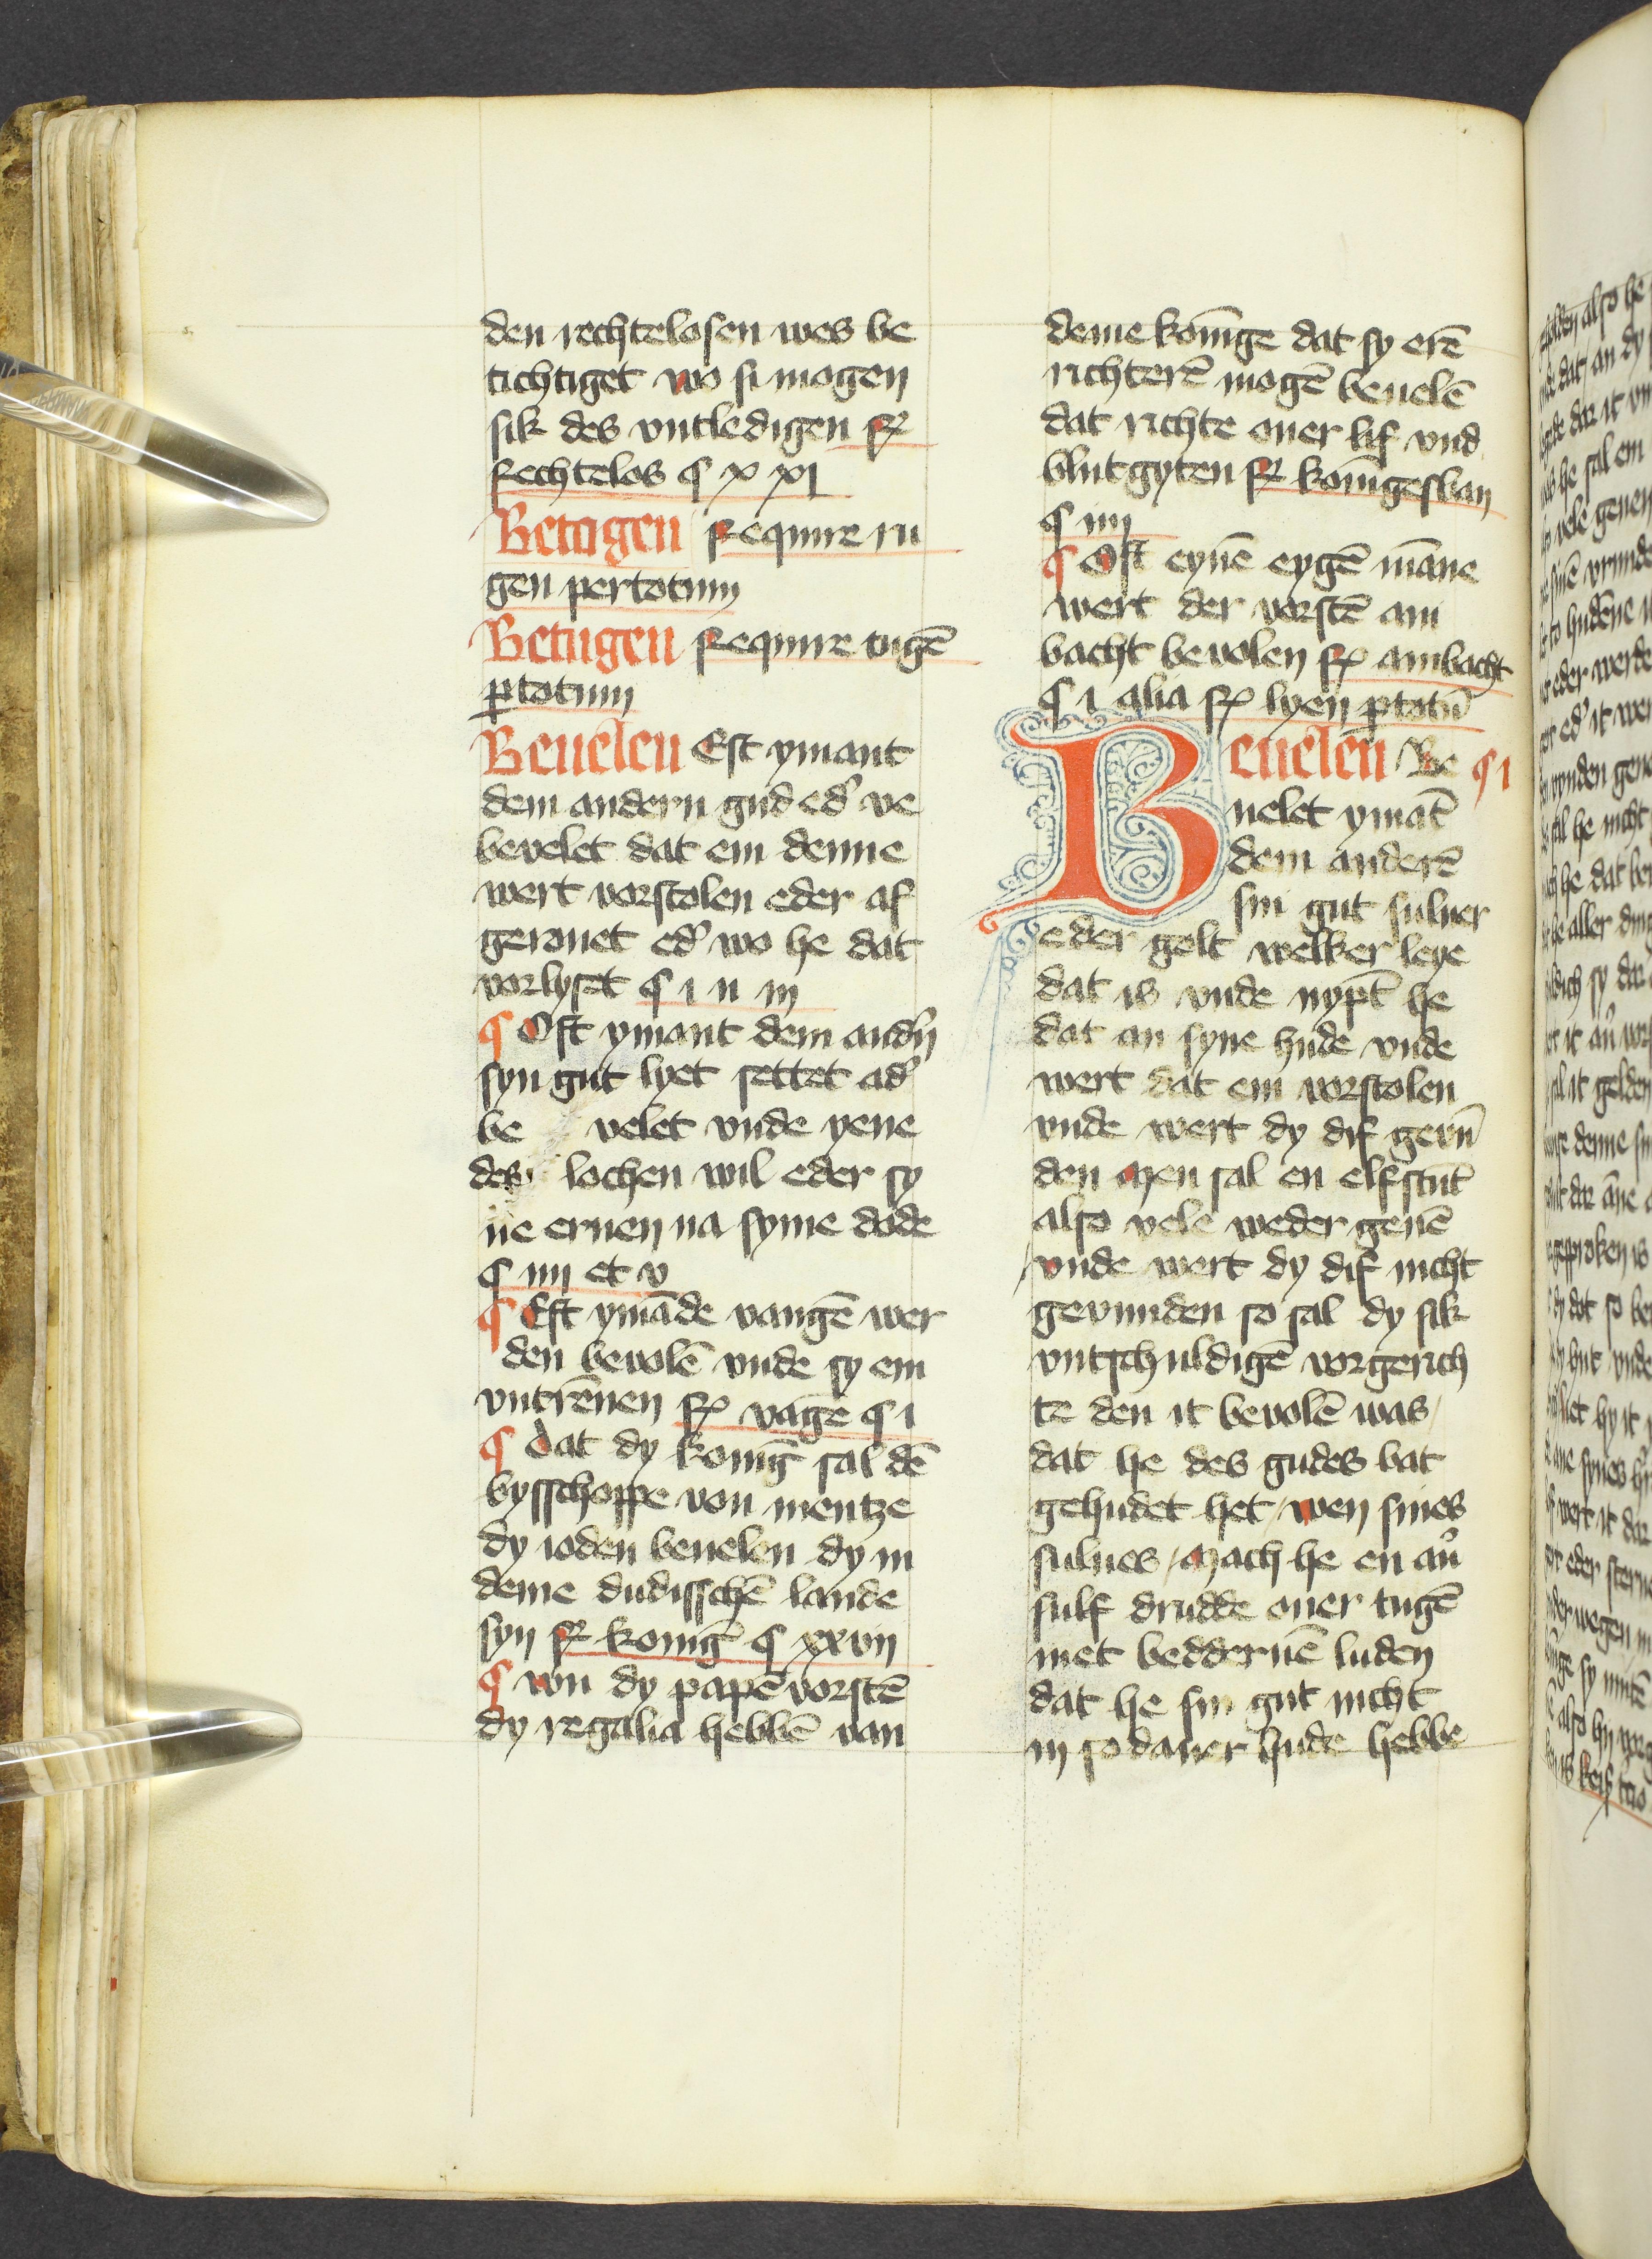 den rechtelosen wes be
tichtiget wo si mogen
sik des vntledigen Rͤ
Rechtelos ¶ x xi
Betagen Require ru
gen pertotum
Betugen Require tugē
ꝑtotum
Beuelen Est ymant
dem andern gud edʼ ve
bevelet dat em denne
wert vorstolen eder af
gerouet edʼ wo he dat
vorlyset ¶ i ii iii
¶ Oft ymant dem andʼn
syn gut lyet settet adʼ
be velet vnde yene
des lochen wil eder sy
ne eruen na syme dode
¶ iiii et v
¶ Eft ymāde vangē wer
den bevolē vnde sy em
vntrēnen Rͤ vāge ¶ i
¶ Dat dy konīg sal dē
bysschoppe von mentze
dy ioden beuelen dy in
deme dudisschē lande
syn Rͤ konīg ¶ xxvii
¶ wu dy papē vorstē
dy regalia hebbē van
deme konīge dat sy erē
richterē mogē beuelē
dat richte ouer lif vnd
blutgyten Rͤ konīgesban
¶ iiii
¶ Oft eynē eygē māne
wert der vorstē am
bacht bevolen Rͤ ambacht
¶ i alia Rͤ lyen ꝑtotū
Beuelen Be ¶ i
uelet ymāt
dem anderē
sin gut suluer
eder golt welker leye
dat is vnde nypt he
dat an syne hude vnde
wert dat em vorstolen
vnde wert dy dif gevū
den Men sal en elfstūt
also vele weder geuē
vnde wert dy dif nicht
gevunden so sal dy sik
vntschuldigē vorgerich
te den it bevolē was /
dat he des gudes bat
gehudet het / wen sines
sulues / Mach he en auʼ
sulf drudde ouer tugē
met bedderuē luden
dat he sin gut nicht
in sodaner hude hebbe